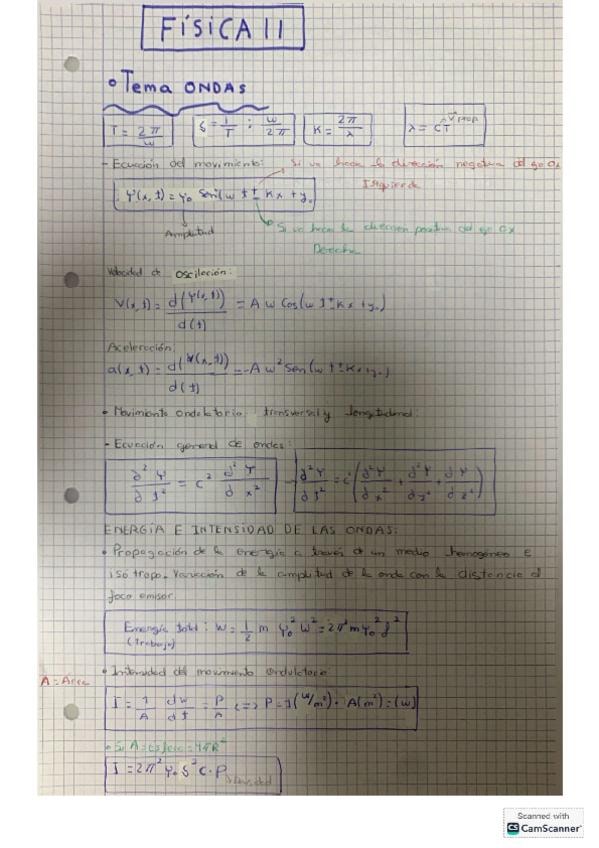 FÍSICA II
• Tema ONDAS
T = 2π/ω   f = 1/T ; ω/2π   K = 2π/λ   λ = CT Vprop
- Ecuación del movimiento: Si va hacia la dirección negativa del eje Ox
Izquierda
Ψ(x, t) = Ψ₀ Sen(ω t ± Kx + φ₀)
Amplitud
Si va hacia la dirección positiva del eje OX
Derecha
Velocidad de oscilación:
V(x, t) = d(Ψ(x, t))/d(t) = A ω Cos(ω t ± Kx + φ₀)
Aceleración:
a(x, t) = d(V(x, t))/d(t) = -A ω² Sen(ω t ± Kx + φ₀)
• Movimiento ondulatorio: transversal y longitudinal:
- Ecuación general de ondas:
∂²Ψ/∂t² = c² ∂²Ψ/∂x²   ∂²Ψ/∂t² = c² (∂²Ψ/∂x² + ∂²Ψ/∂y² + ∂²Ψ/∂z²)
ENERGÍA E INTENSIDAD DE LAS ONDAS:
• Propagación de la energía a través de un medio homogéneo e
isótropo. Variación de la amplitud de la onda con la distancia al
foco emisor.
Energía total: W = 1/2 m Ψ₀² ω² = 2π² m Ψ₀² f²
(Trabajo)
• Intensidad del movimiento ondulatorio:
A = Área
I = 1/A dw/dt = P/A <=> P = I (W/m²) · A(m²) = (W)
• Si A = esfera = 4πR²
I = 2π² Ψ₀ f² C · P
Densidad
Scanned with
CS CamScanner